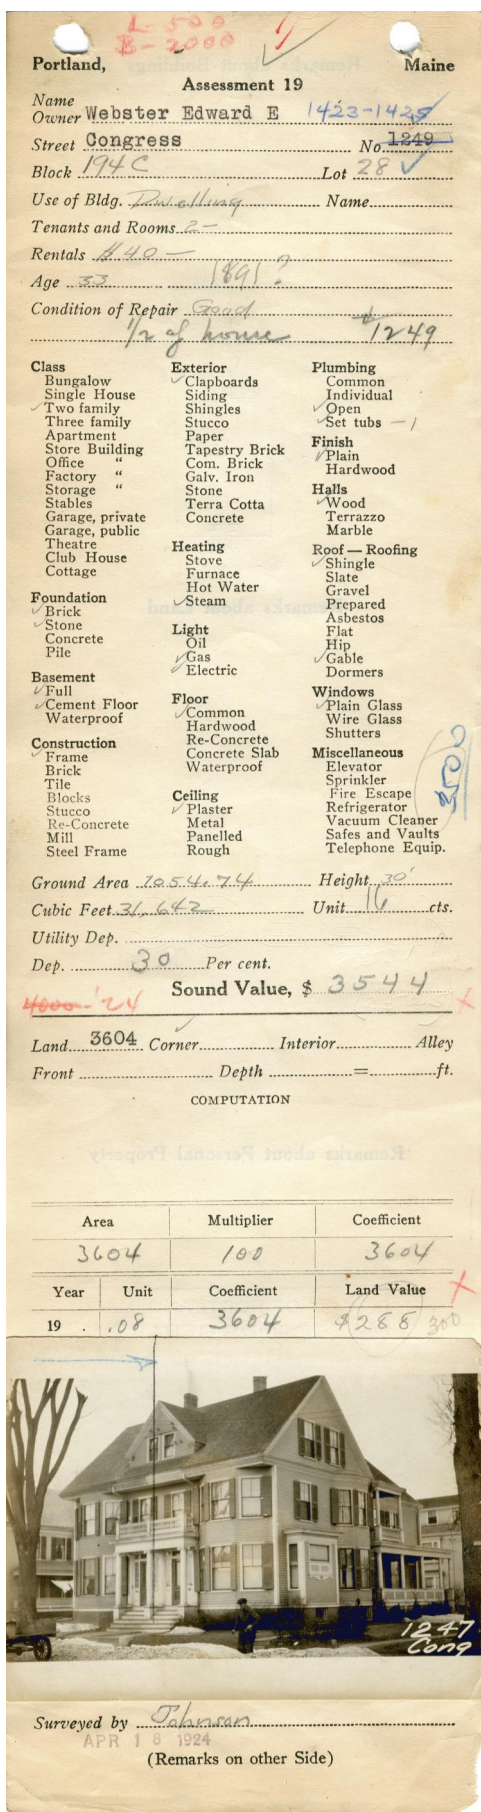 L-500
B-2000
Portland, Maine
Assessment 19
Name
Owner Webster Edward E 1423-1425
Street Congress No 1249
Block 194C Lot 28
Use of Bldg. Dwelling Name
Tenants and Rooms 2-
Rentals $40-
Age 33 1891?
Condition of Repair Good
1/2 of house #1249
Class
Bungalow
Single House
Two family
Three family
Apartment
Store Building
Office “
Factory “
Storage “
Stables
Garage, private
Garage, public
Theatre
Club House
Cottage
Foundation
Brick
Stone
Concrete
Pile
Basement
Full
Cement Floor
Waterproof
Construction
Frame
Brick
Tile
Blocks
Stucco
Re-Concrete
Mill
Steel Frame
Exterior
Clapboards
Siding
Shingles
Stucco
Paper
Tapestry Brick
Com. Brick
Galv. Iron
Stone
Terra Cotta
Concrete
Heating
Stove
Furnace
Hot Water
Steam
Light
Oil
Gas
Electric
Floor
Common
Hardwood
Re-Concrete
Concrete Slab
Waterproof
Ceiling
Plaster
Metal
Panelled
Rough
Plumbing
Common
Individual
Open
Set tubs - 1
Finish
Plain
Hardwood
Halls
Wood
Terrazzo
Marble
Roof — Roofing
Shingle
Slate
Gravel
Prepared
Asbestos
Flat
Hip
Gable
Dormers
Windows
Plain Glass
Wire Glass
Shutters
Miscellaneous
Elevator
Sprinkler
Fire Escape
Refrigerator
Vacuum Cleaner
Safes and Vaults
Telephone Equip.
Ground Area 1054.74 Height 30'
Cubic Feet 31,642 Unit 16 cts.
Utility Dep.
Dep. 30 Per cent.
Sound Value, $ 3544
4000-'24
Land 3604 Corner Interior Alley
Front Depth = ft.
COMPUTATION
Area Multiplier Coefficient
3604 100 3604
Year Unit Coefficient Land Value
19 . .08 3604 $288 300
1247
Cong
Surveyed by Johnson
APR 18 1924
(Remarks on other Side)